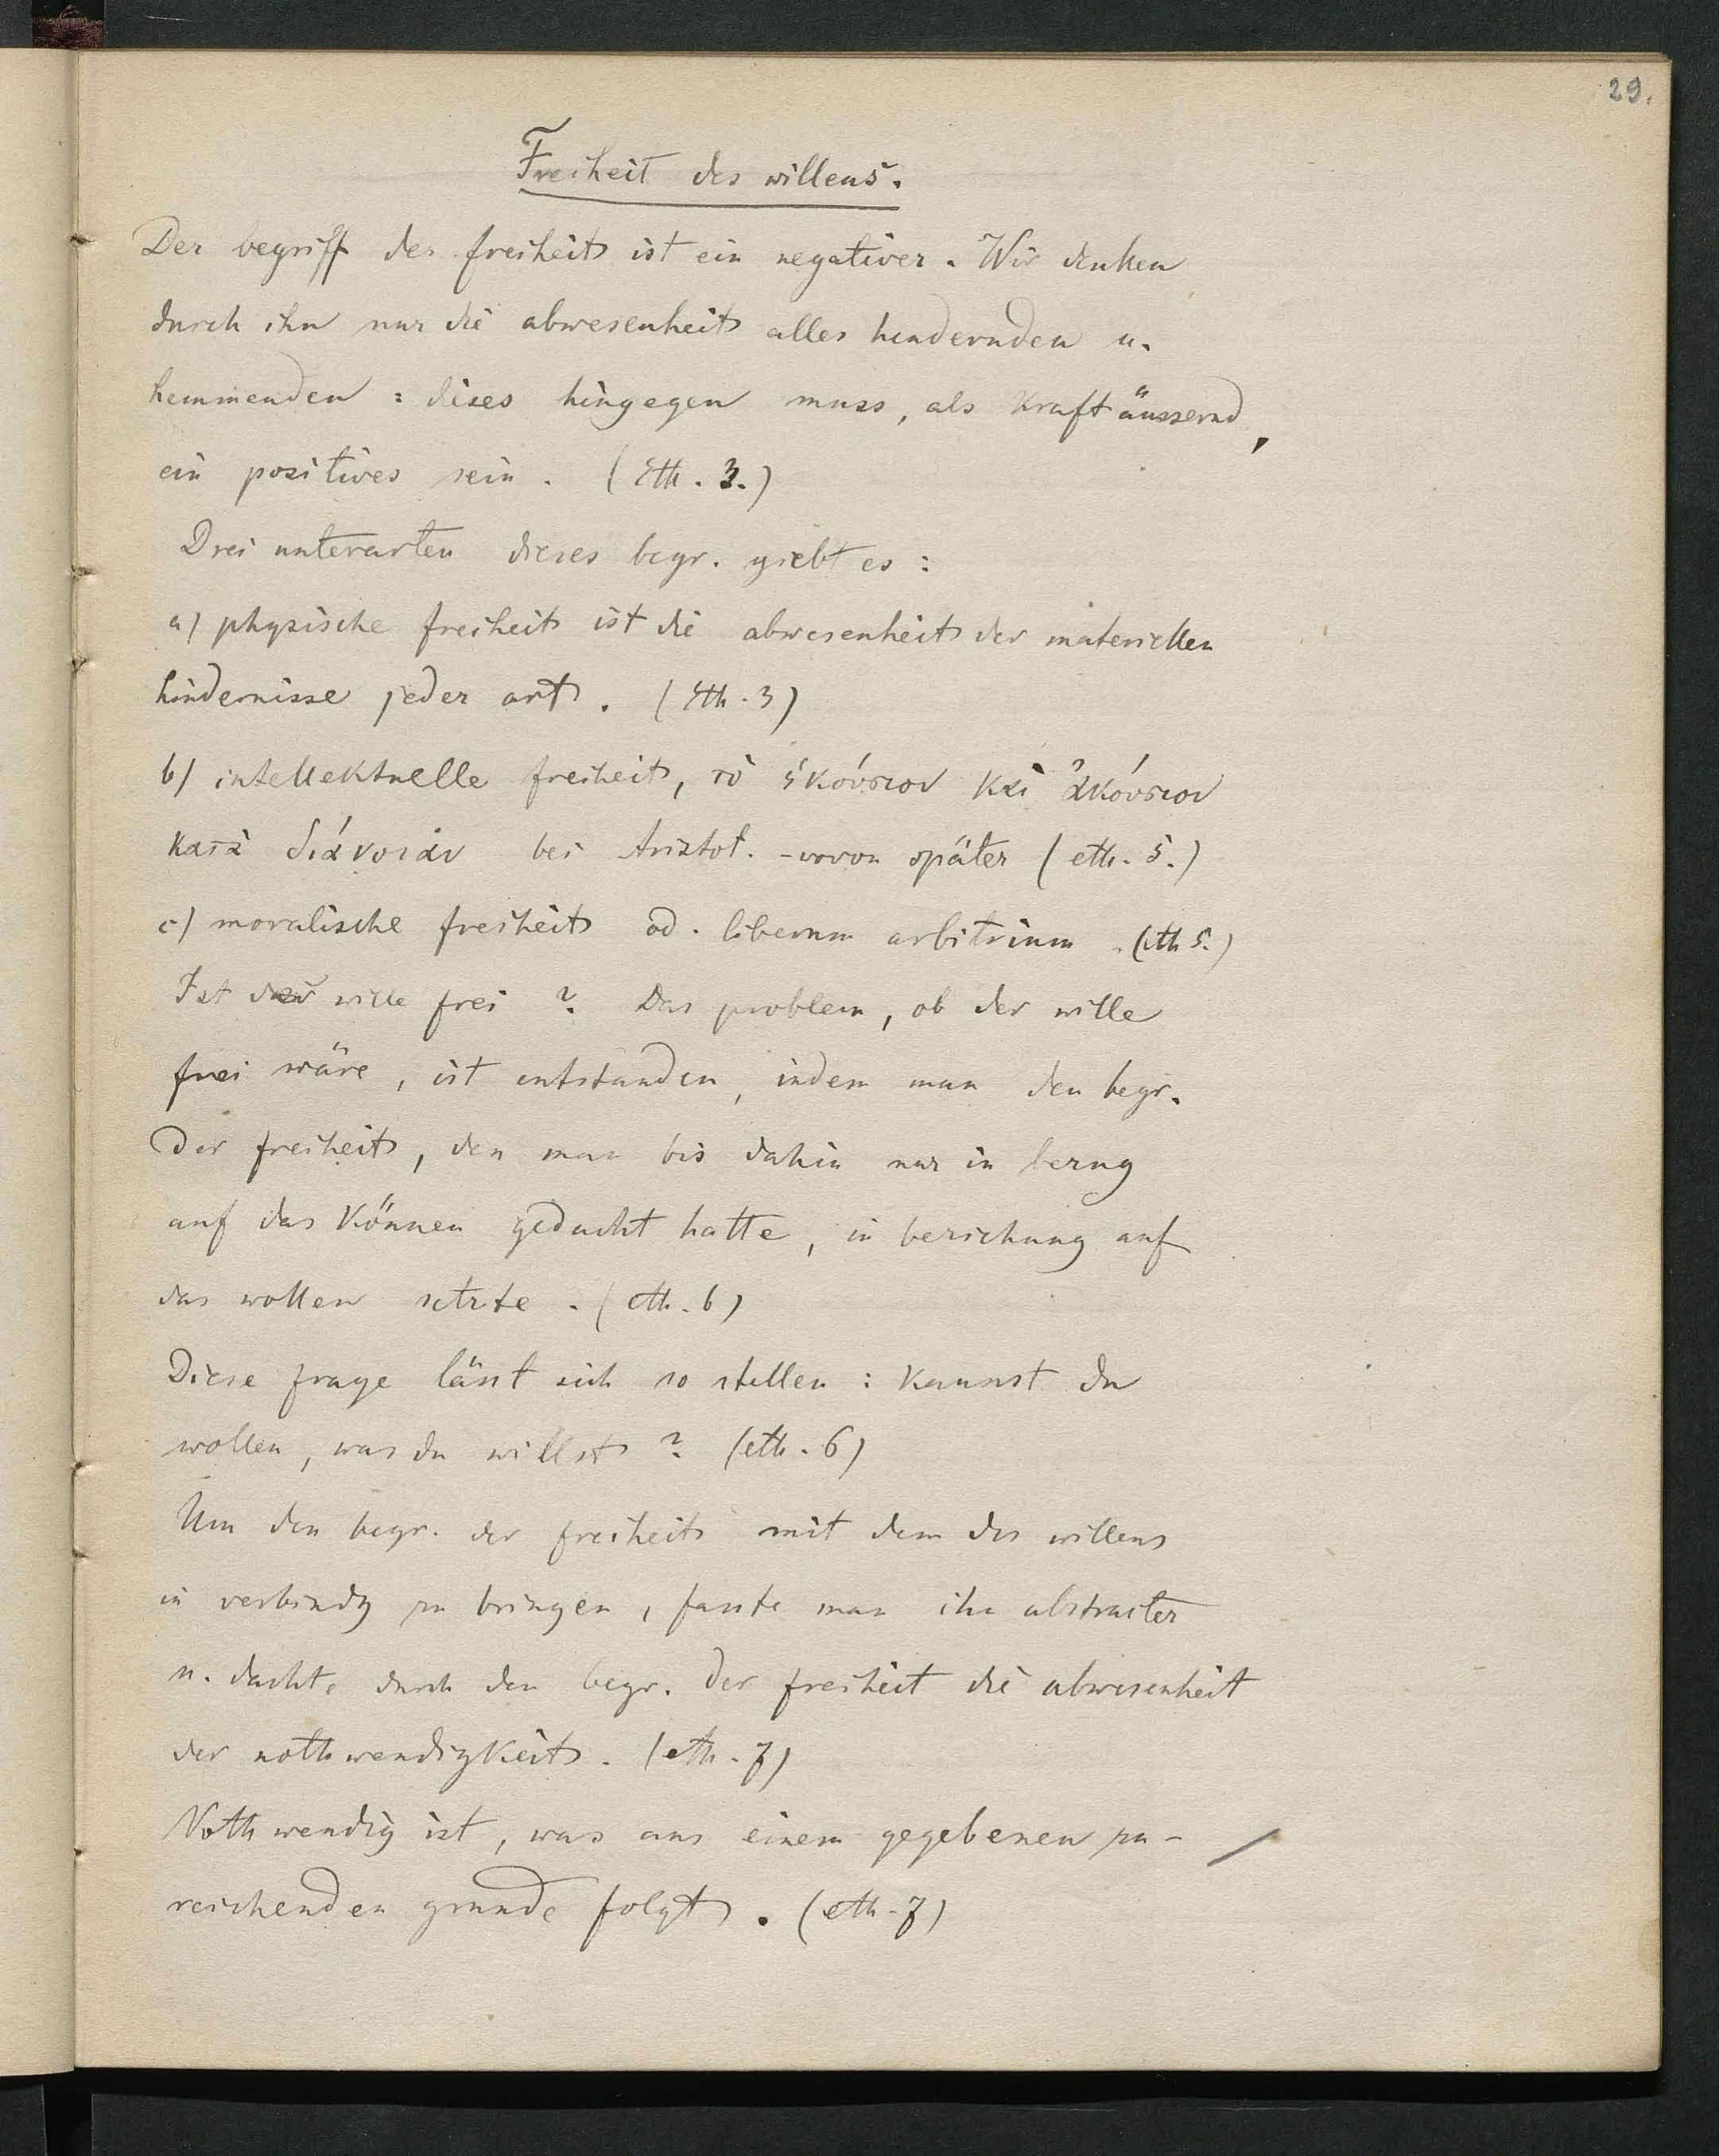 29.
Freiheit des willens.
Der begriff der freiheit ist ein negativer. Wir denken
durch ihn nur die abwesenheit alles hindernden u.
hemmenden: dieses hingegen muss, als Kraft äussernd,
ein positives sein. (Eth. 3.)
Drei unterarten dieses begr. giebt es:
a) physische freiheit ist die abwesenheit der materiellen
hindernisse jeder art. (Eth. 3)
b) intellektuelle freiheit, τὸ ἑκούσιον καὶ ἀκούσιον
κατὰ διάνοιαν bei Aristot. - wovon später (eth. 5.)
c) moralische freiheit od. liberum arbitrium. (eth 5.)
Ist der wille frei? Das problem, ob der wille
frei wäre, ist entstanden, indem man den begr.
der freiheit, den man bis dahin nur in bezug
auf das Können gedacht hatte, in beziehung auf
das wollen setzte. (eth. 6)
Diese frage lässt sich so stellen: Kannst du
wollen, was du willst? (eth. 6)
Um den begr. der freiheit mit dem des willens
in verbindg zu bringen, fasste man ihn abstracter
u. dachte durch den begr. der freiheit die abwesenheit
der nothwendigkeit. (eth. 7)
Nothwendig ist, was aus einem gegebenen zu-
reichenden grunde folgt. (eth. 7)